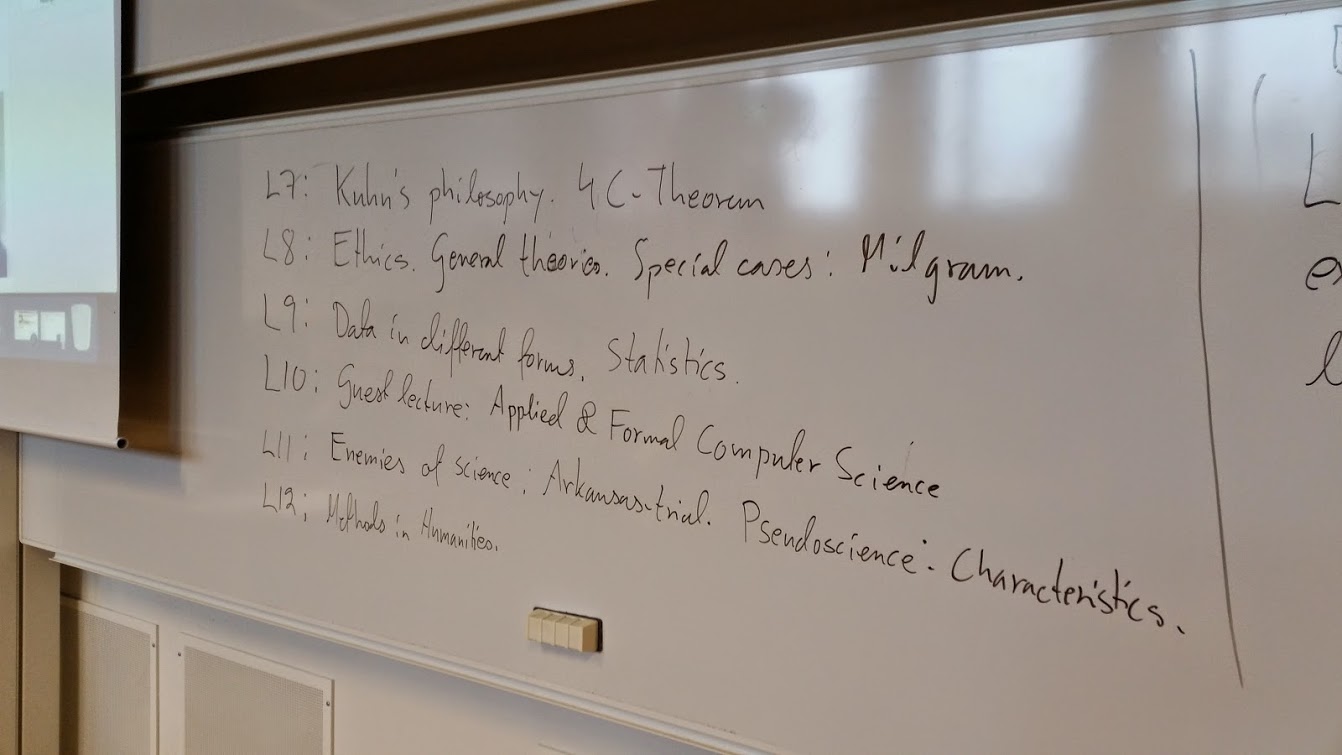 L7: Kuhn's philosophy. 4C-Theorem
L8: Ethics. General theories. Special cases: Milgram.
L9: Data in different forms. Statistics.
L10: Guest lecture: Applied & Formal Computer Science
L11: Enemies of science: Arkansas-trial. Pseudoscience: Characteristics.
L12: Methods in Humanities.